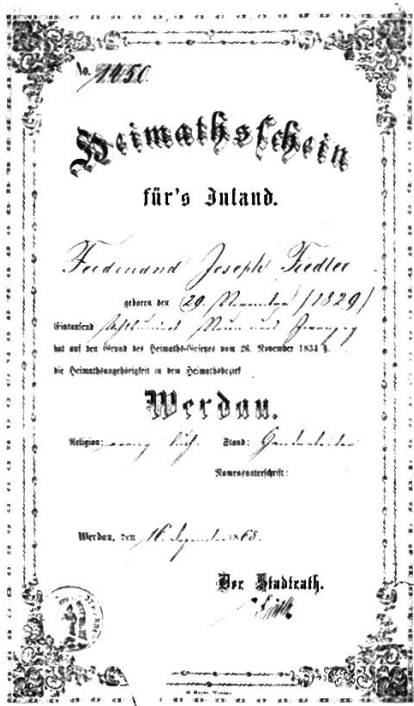 No. 1450.
Heimathsschein
für's Inland.
Ferdinand Joseph Fiedler
geboren den (29. November (1829)
Eintausend Achthundert Neun und Zwanzig
hat auf den Grund des Heimaths-Gesetzes vom 26. November 1834 §.
die Heimathsangehörigkeit in dem Heimathsbezirk
Werdau.
Religion: evang. luth. Stand:
Namensunterschrift:
Werdau, den 16. 186
Der Stadtrath.